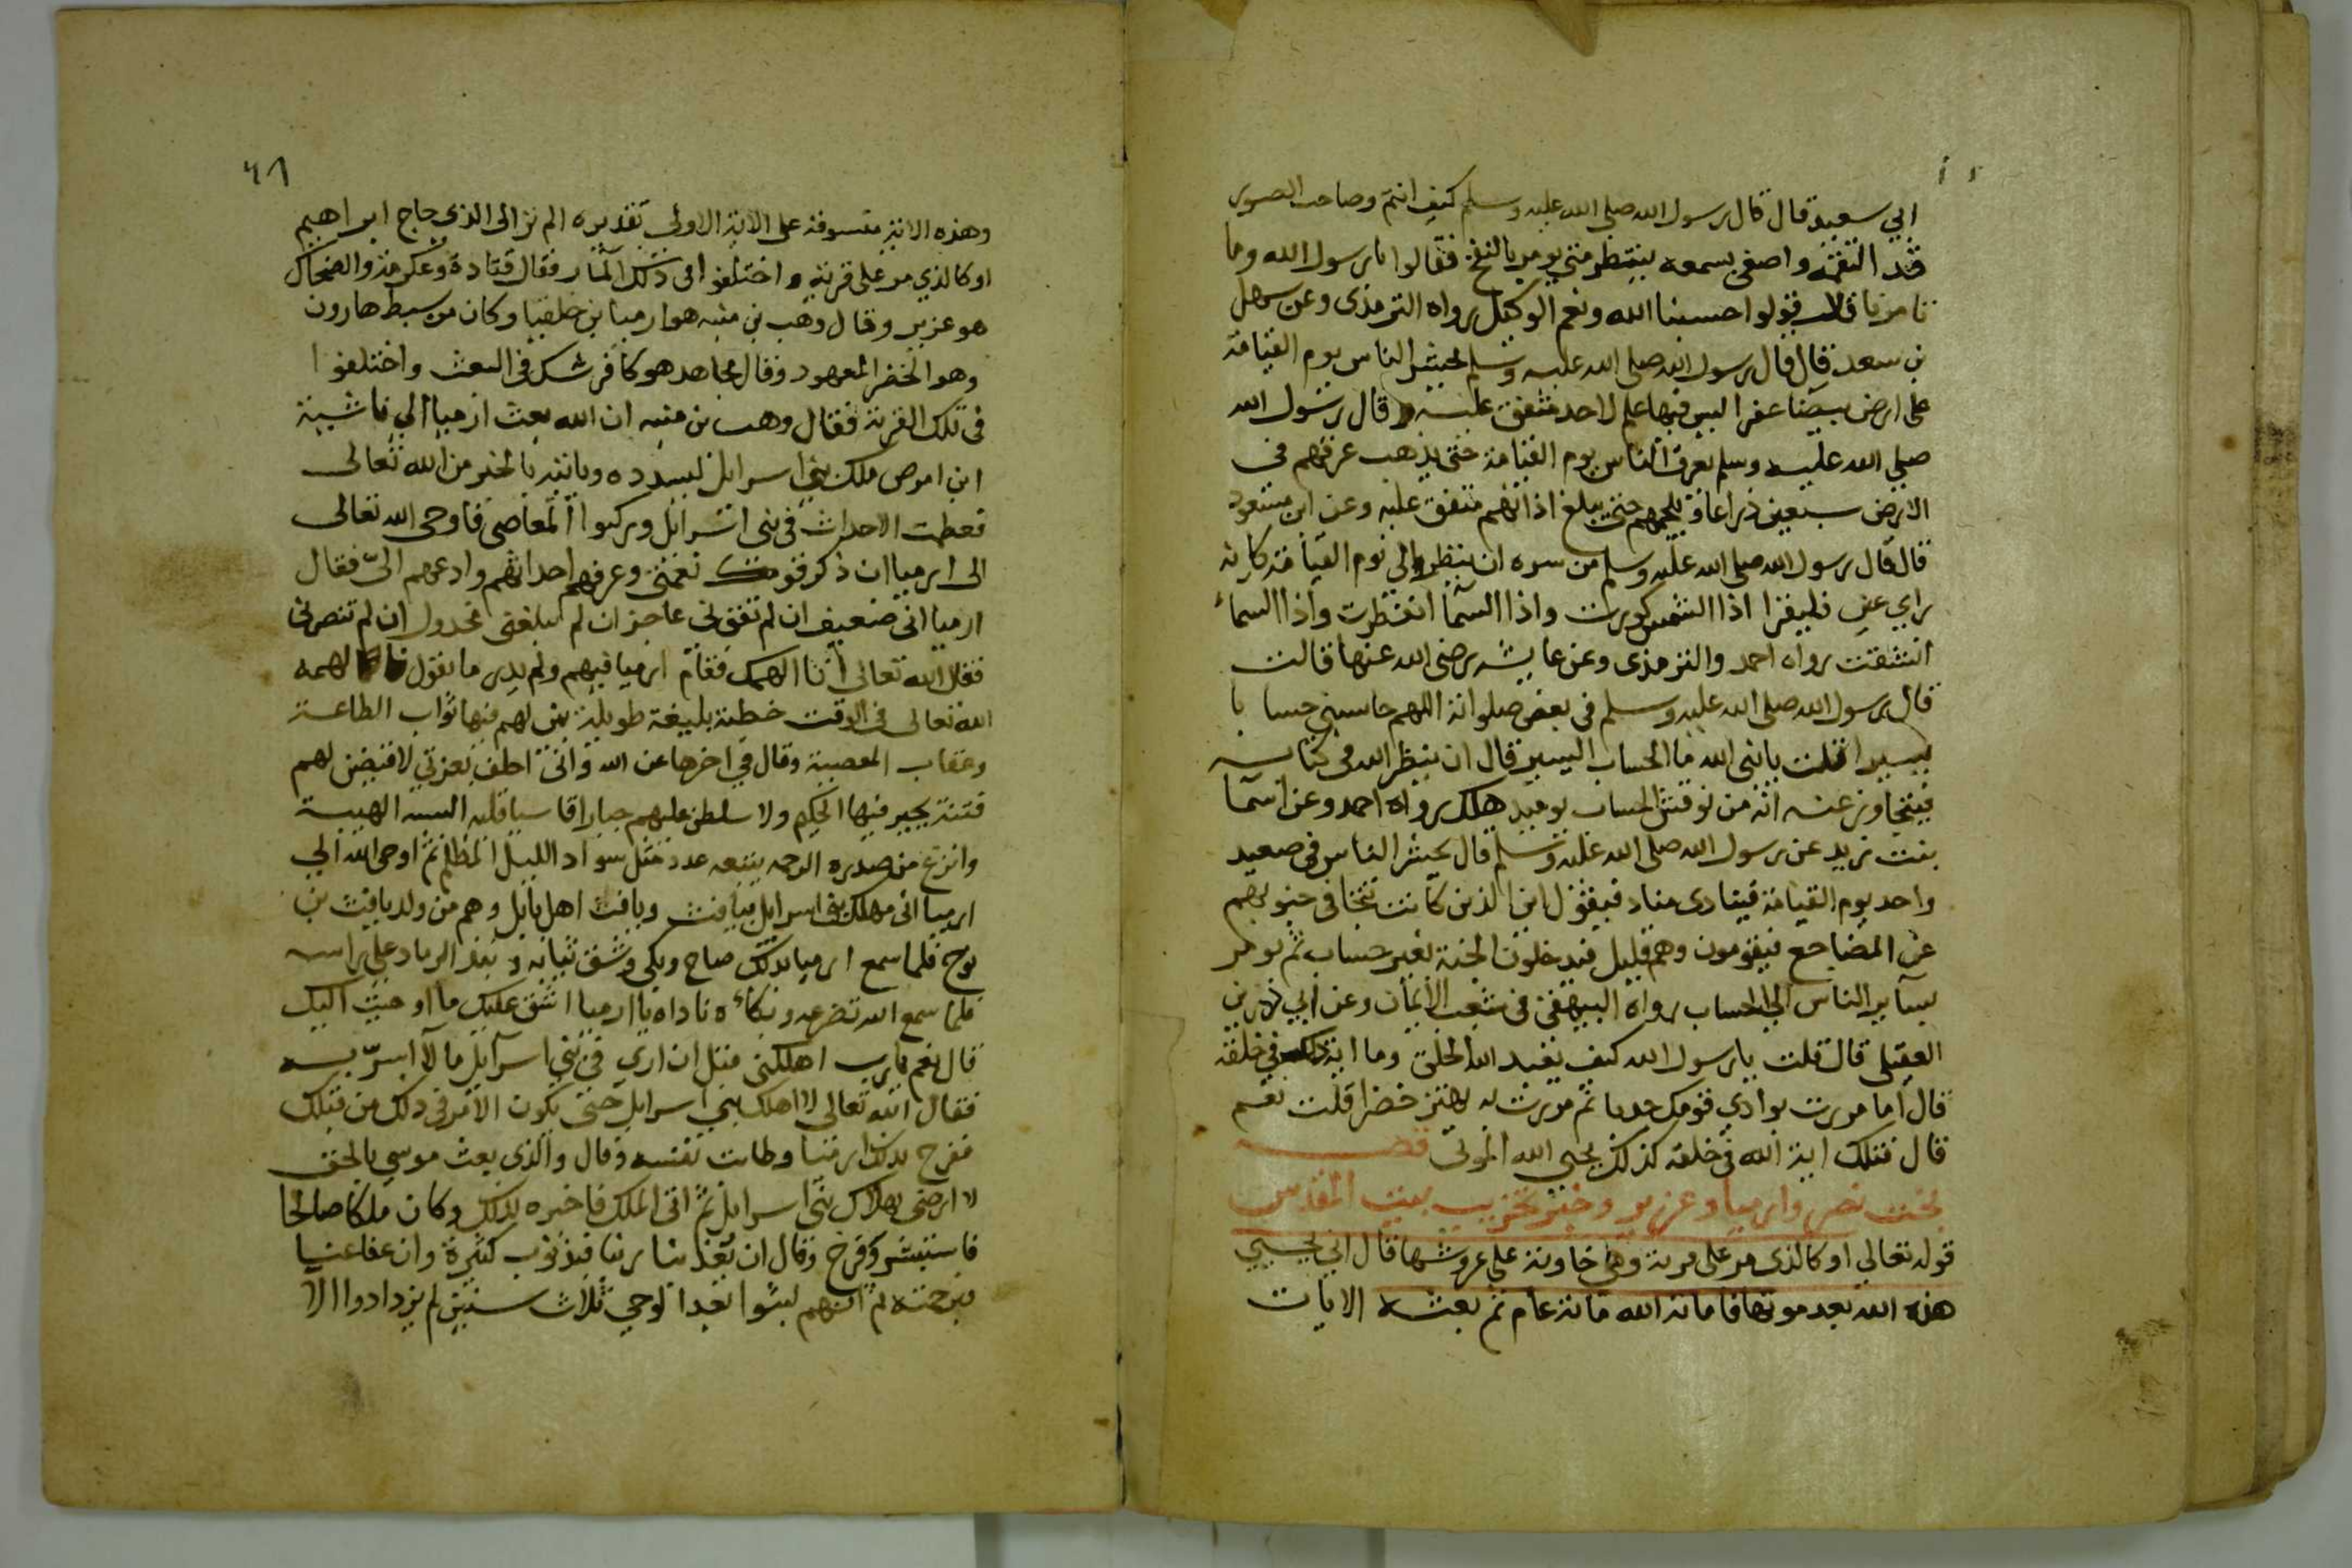 ابي سعيد قال قال رسول الله صلى الله عليه وسلم كيف انتم وصاحب الصور
قد التقمه واصغى بسمعه ينتظر متى يومر بالنفخ فقالوا يا رسول الله وما
تامرنا قال قولوا حسبنا الله ونعم الوكيل رواه الترمذى وعن سهل
بن سعد قال قال رسول الله صلى الله عليه وسلم يحشر الناس يوم القيامة
على ارض بيضا عفرا ليس فيها علم لاحد متفق عليه وقال رسول الله
صلى الله عليه وسلم يعرق الناس يوم القيامة حتى يذهب عرقهم فى
الارض سبعين ذراعا ويلجمهم حتى يبلغ اذانهم متفق عليه وعن ابن مسعود
قال قال رسول الله صلى الله عليه وسلم من سره ان ينظر الى يوم القيامة كانه
راي عين فليقرا اذا الشمس كورت واذا السما انفطرت واذا السماء
انشقت رواه احمد والترمذى وعن عايشه رضى الله عنها قالت
قال رسول الله صلى الله عليه وسلم فى بعض صلواته اللهم حاسبني حسابا
يسيرا قلت يا نبي الله ما الحساب اليسير قال ان ينظر الله فى كتابه
فيتجاوز عنه انه من نوقش الحساب يوميذ هلك رواه احمد وعن اسما
بنت يزيد عن رسول الله صلى الله عليه وسلم قال يحشر الناس فى صعيد
واحد يوم القيامة فينادى مناد فيقول اين الذين كانت تتجافى جنوبهم
عن المضاجع فيقومون وهم قليل فيدخلون الجنة بغير حساب ثم يومر
بساير الناس الى الحساب رواه البيهقى فى شعب الايمان وعن ابي رزين
العقيلى قال قلت يا رسول الله كيف يعيد الله الخلق وما اية ذلك فى خلقه
قال اما مررت بوادي قومك جدبا ثم مررت به يهتز خضرا قلت نعم
قال فتلك اية الله فى خلقه كذلك يحيي الله الموتى قصـــه
بخت نصر وارميا وعزير وخبر تخريب بيت المقدس
قوله تعالى او كالذى مر على قرية وهى خاوية على عروشها قال انى يحيي
هذه الله بعد موتها فاماته الله مائة عام ثم بعثه الايات
٦٨
وهذه الاية منسوقة على الاية الاولى تقديره الم تر الى الذى حاج ابراهيم
او كالذي مر على قرية واختلفوا فى ذلك المار فقال قتادة وعكرمة والضحاك
هو عزير وقال وهب بن منبه هو ارميا بن خلقيا وكان من سبط هارون
وهو الخضر المعهود وقال مجاهد هو كافر شك فى البعث واختلفوا
فى تلك القرية فقال وهب بن منبه ان الله بعث ارميا الى ناشية
ابن اموص ملك بني اسرايل ليسدده وياتيه بالخبر من الله تعالى
فعظمت الاحداث فى بنى اسرائل وركبوا المعاصى فاوحى الله تعالى
الى ارميا ان ذكر قومك نعمتى وعرفهم احداثهم وادعهم الىّ فقال
ارميا انى ضعيف ان لم تقونى عاجز ان لم تبلغنى مخذول ان لم تنصرنى
فقال الله تعالى انا الهمك فقام ارميا فيهم ولم يدر ما يقول فالهمه
الله تعالى فى الوقت خطبة بليغة طويلة بين لهم فيها ثواب الطاعة
وعقاب المعصية وقال فى اخرها عن الله وانى احلف بعزتي لاقيضن لهم
فتنة يحير فيها الحكيم ولاسلطن عليهم جبارا قاسيا قلبه البسه الهيبة
وانزع من صدره الرحمه يتبعه عدد مثل سواد الليل المظلم ثم اوحى الله الى
ارميا انى مهلك بنى اسرايل بيافث ويافث اهل بابل وهم من ولد يافث بن
نوح فلما سمع ارميا ذلك صاح وبكى وشق ثيابه ونبذ الرماد على راسه
فلما سمع الله تضرعه وبكاءه ناداه يا ارميا اشق عليك ما اوحيت اليك
قال نعم يا رب اهلكنى قبل ان ارى فى بني اسرآيل ما لا اسرّ به
فقال الله تعالى لا اهلك بني اسرايل حتى يكون الامر فى ذلك من قبلك
ففرح بذلك ارميا وطابت نفسه وقال والذى بعث موسى بالحق
لا ارضى بهلاك بنى اسرايل ثم اتى الملك فاخبره بذلك وكان ملكا صالحا
فاستبشر وفرح وقال ان يعذبنا ربنا فبذنوب كثيرة وان عفا عنا
فبرحمته ثم انهم لبثوا بعد الوحي ثلاث سنين لم يزدادوا الا